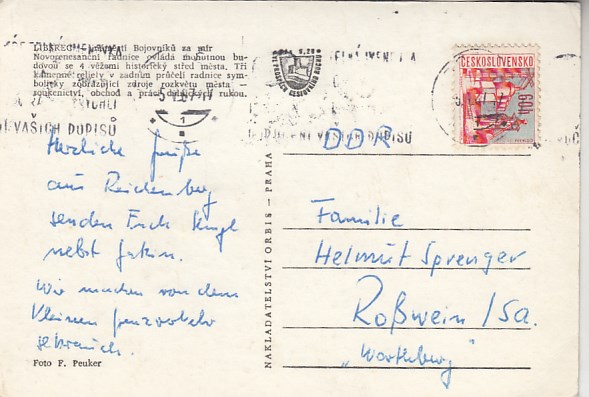 LIBEREC — náměstí Bojovníků za mír
Novorenesanční radnice ovládá mohutnou bu-
dovou se 4 věžemi historický střed města. Tři
kamenné reliefy v zadním průčelí radnice sym-
bolicky zobrazující zdroje rozkvětu města —
soukenictví, obchod a práci dělnických rukou.
VAŠICH DOPISŮ
1
VAŠICH DOPISŮ
ČESKOSLOVENSKO
600
Herzliche Grüße
aus Reichenberg
senden Euch
nebst
Wir machen von dem
Kleinen
Gebrauch.
Foto F. Peuker
NAKLADATELSTVÍ ORBIS — PRAHA
DDR
Familie
Helmut Sprenger
Roßwein / Sa.
„Wartburg“